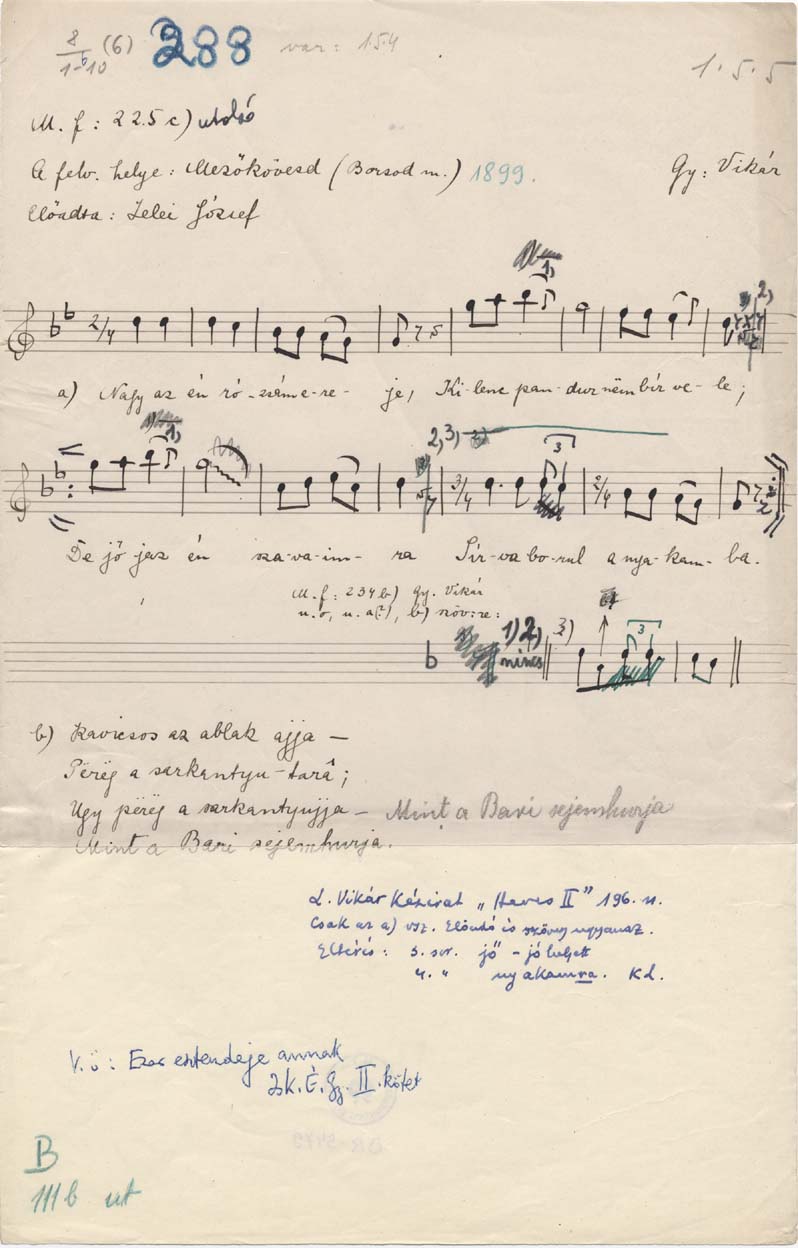 8 (6) 288 var: 1.5.4
1-b10
1.5.5
M. f: 225 c) utolsó
A felv. helye: Mezőkövesd (Borsod m.) 1899. Gy: Vikár
Előadta: Zelei József
2/4
1)
2)
a) Nagy az én ró-zsám e-re-je, Ki-lenc pan-dur nëm bír ve-le;
1)
2, 3,
3
3/4
2/4
De jő jaz én sza-va-im-ra Sír-va bo-rul a nya-kam-ba.
M. f: 234 b) Gy. Vikár
u.o, u.a(?), b) szöv:re:
b 1) 2, nincs 3) 3
b) Kavicsos az ablak ajja –
Përëg a sarkantyu-tará;
Ugy përëg a sarkantyujja – Mint a Bari sejemhurja
Mint a Bari sejemhurja.
L. Vikár Kézirat „Heves II” 196. sz.
Csak az a) vsz. Előadó és szöveg ugyanaz.
Eltérés: 3. sor. jő – jó helyett
4. " nyakamra. KL.
V. ö: Ezer esztendeje annak
Isk. É. Gy. II. kötet
B
111b ut